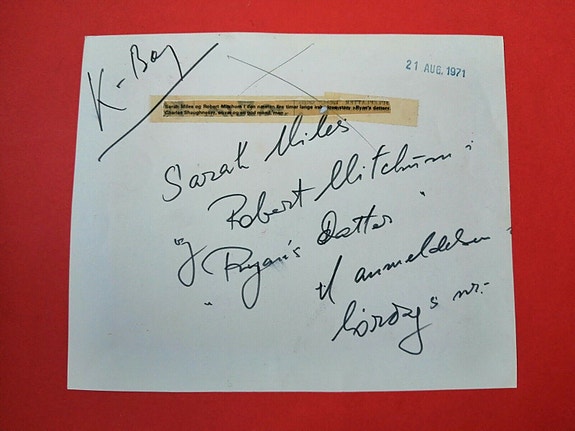 K-Bay
21 AUG. 1971
Sarah Miles og Robert Mitchum i den næsten fire timer lange »Ryan's datter«.
Charles Shaughnessy,
Sarah Miles
Robert Mitchum i
"Ryan's Datter"
til anmeldelsen
lørdag's nr.